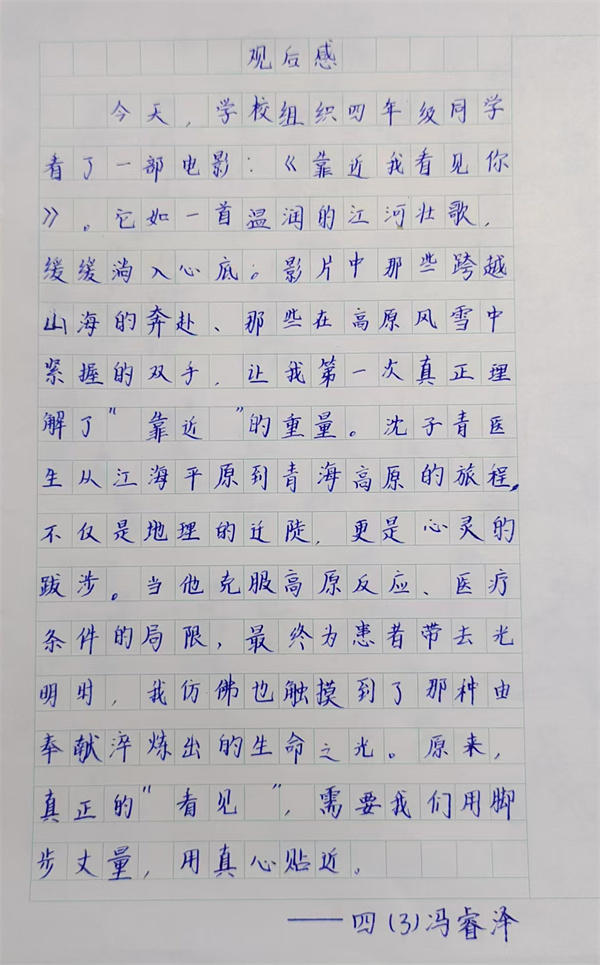 观后感
今天，学校组织四年级同学
看了一部电影：《靠近我看见你
》。它如一首温润的江河壮歌，
缓缓淌入心底。影片中那些跨越
山海的奔赴、那些在高原风雪中
紧握的双手，让我第一次真正理
解了“靠近”的重量。沈子青医
生从江海平原到青海高原的旅程，
不仅是地理的迁陡，更是心灵的
跋涉。当他克服高原反应、医疗
条件的局限，最终为患者带去光
明时，我仿佛也触摸到了那种由
奉献淬炼出的生命之光。原来，
真正的“看见”，需要我们用脚
步丈量，用真心贴近。
——四(3)冯睿泽